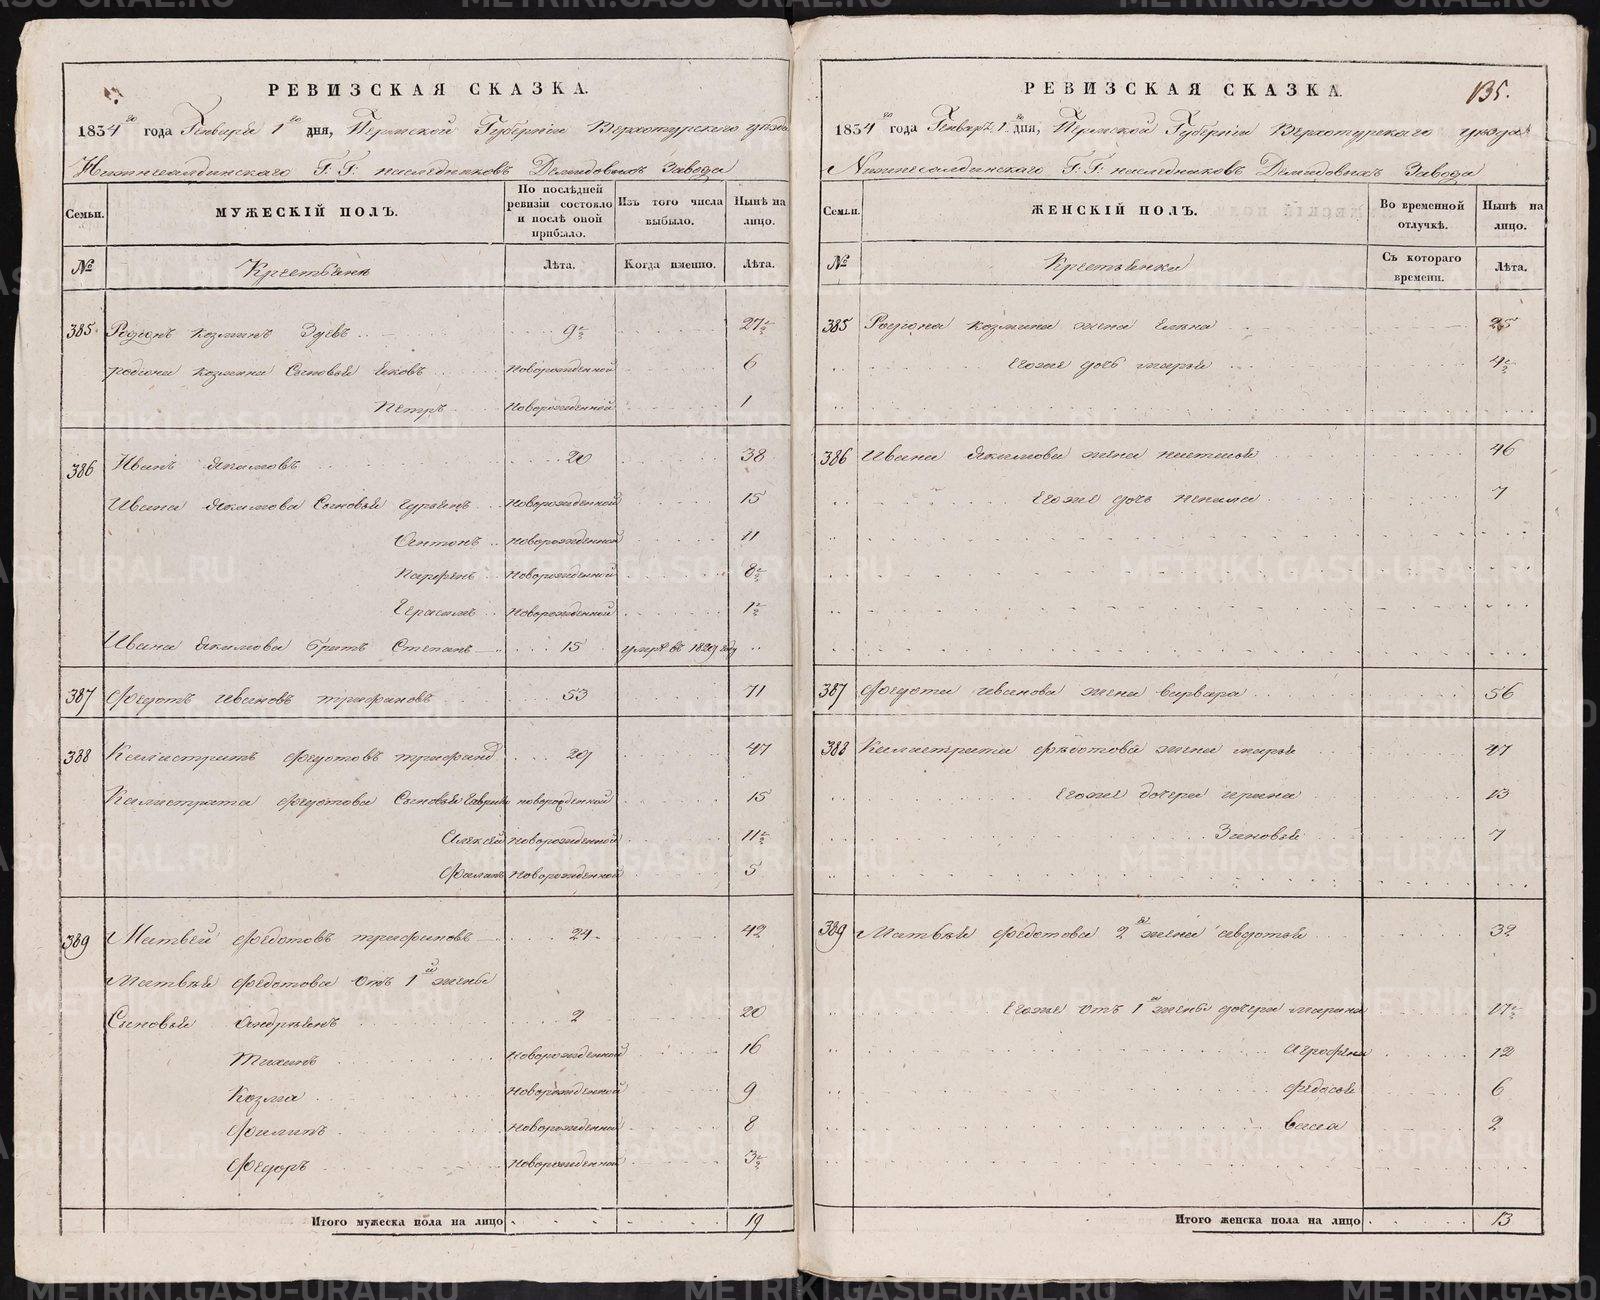 РЕВИЗСКАЯ СКАЗКА.
1834 го года Генваря 1 го дня, Пермской Губернiи Верхотурскаго уѣзда
Нижнесалдинскаго Г: Г: наследниковъ Демидовыхъ Завода
Семьи. МУЖЕСКIЙ ПОЛЪ. По послѣдней ревизiи состояло и послѣ оной прибыло. Изъ того числа выбыло. Нынѣ на лицо.
№ Крестьяне Лѣта. Когда именно. Лѣта.
385 Родiонъ Козминъ Зуевъ 9 ½ 27 ½
родiона козмина Сыновья Iяковъ новорожденной 6
Петръ Новорожденной 1
386 Иванъ Якимовъ 20 38
Ивана Якимова Сыновья Гурьянъ Новорожденной 15
Антонъ Новорожденной 11
Парфенъ Новорожденной 8 ½
Герасимъ Новорожденной 1 ½
Ивана Якимова братъ Степанъ 15 умре въ 1829 году
387 Федотъ Ивановъ трифановъ 53 71
388 Калистратъ Федотовъ трифанов 29 47
Калистрата Федотова Сыновья Гаврило новорожденной 15
Алексей Новорожденной 11 ½
Филипъ Новорожденной 5
389 Матвей Федотовъ трифановъ 24 42
Матвея Федотова Отъ 1 й жены
Сыновья Андреянъ 2 20
Тихинъ Новорожденной 16
Козма Новорожденной 9
Филипъ Новорожденной 8
Федоръ Новорожденной 3 ½
Итого мужеска пола на лицо 19
135.
РЕВИЗСКАЯ СКАЗКА.
1834 го года Генваря 1 го дня, Пермской Губернiи Верхотурскаго уѣзда
Нижнесалдинскаго Г: Г: наследниковъ Демидовыхъ Завода
Семьи. ЖЕНСКIЙ ПОЛЪ. Во временной отлучкѣ. Нынѣ на лицо.
№ Крестьянки Съ котораго времени. Лѣта.
385 Родiона козмина жена Елена 25
Егоже дочь марья 4 ½
386 Ивана Якимова жена настасья 46
Егоже дочь 7
387 Федота Иванова жена варвара 56
388 Калистрата Федотова жена марья 47
Егоже дочери ирина 13
Зиновья 7
389 Матвея Федотова 2 я жена авдотья 32
Егоже отъ 1 й жены дочери марина 17 ½
Агрофена 12
Федосья 6
васса 2
Итого женска пола на лицо 13
METRIKI.GASO-URAL.RU